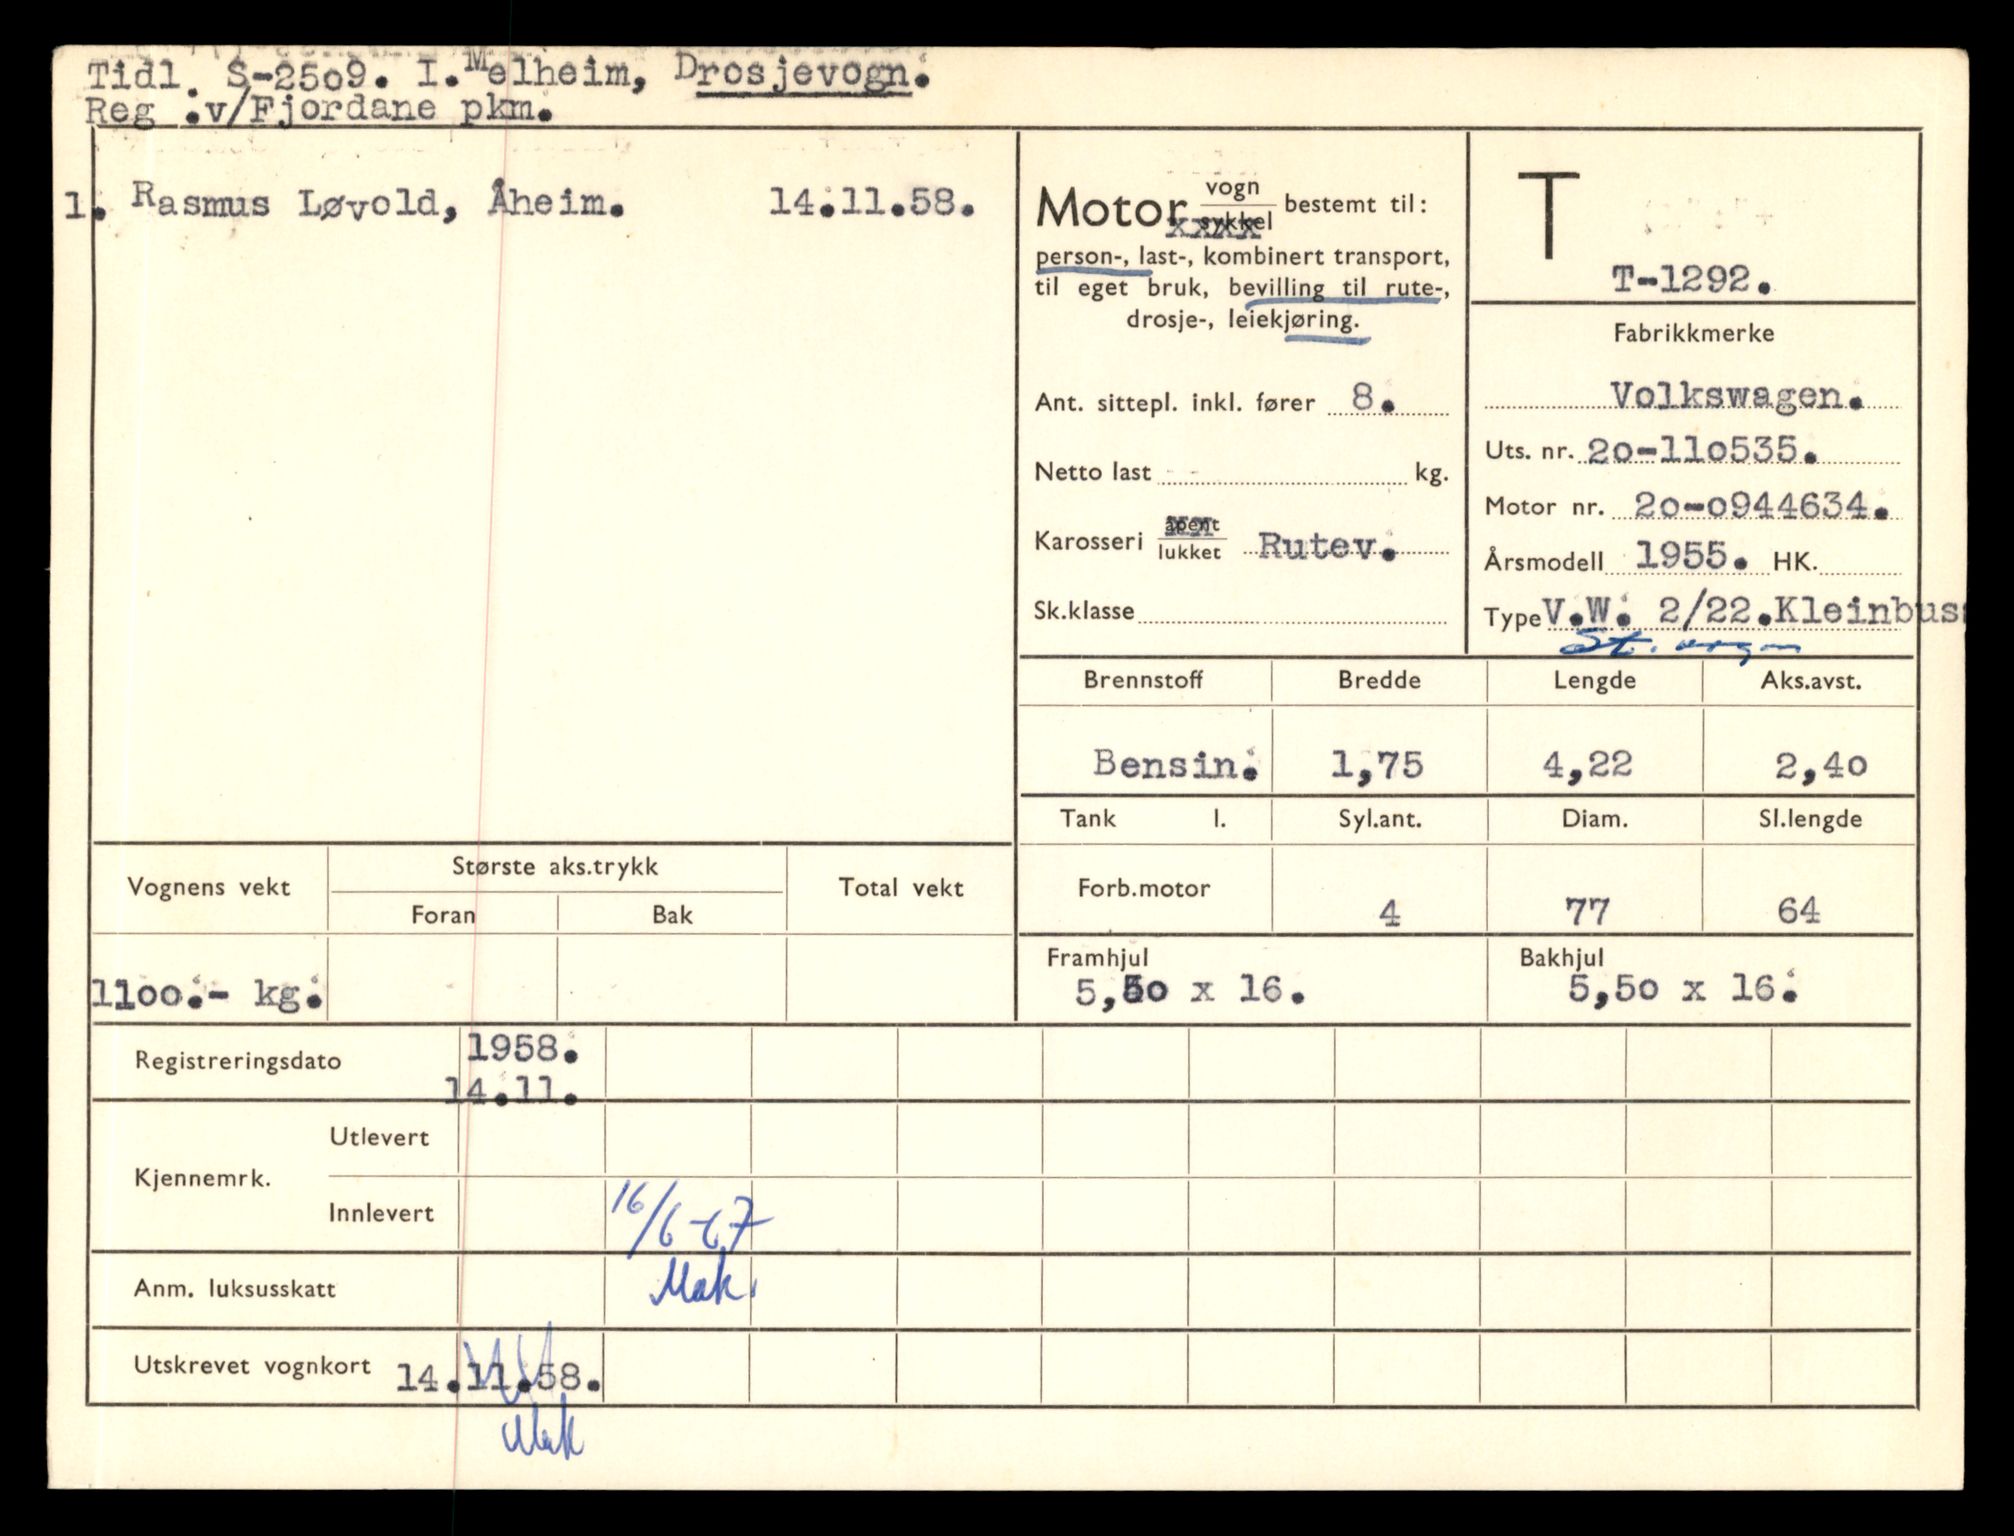 Tidl. S-2509. I. Melheim, Drosjevogn.
Reg .v/Fjordane pkm.
1. Rasmus Løvold, Åheim. 14.11.58.
Motor vogn
sykkel bestemt til:
person-, last-, kombinert transport,
til eget bruk, bevilling til rute-,
drosje-, leiekjøring.
Ant. sittepl. inkl. fører 8.
Netto last kg.
Karosseri åpent
lukket Rutev.
Sk.klasse
T
T-1292.
Fabrikkmerke
Volkswagen.
Uts. nr. 20-110535.
Motor nr. 20-0944634.
Årsmodell 1955. HK.
Type V.W. 2/22.Kleinbuss
St. vogn
Brennstoff Bredde Lengde Aks.avst.
Bensin. 1,75 4,22 2,40
Tank l. Syl.ant. Diam. Sl.lengde
Forb.motor 4 77 64
Framhjul Bakhjul
5,50 x 16. 5,50 x 16.
Vognens vekt Største aks.trykk Total vekt
Foran Bak
1100.- kg.
Registreringsdato 1958.
14.11.
Kjennemrk. Utlevert
Innlevert 16/6-67
Mak.
Anm. luksusskatt
Utskrevet vognkort 14.11.58.
Mak